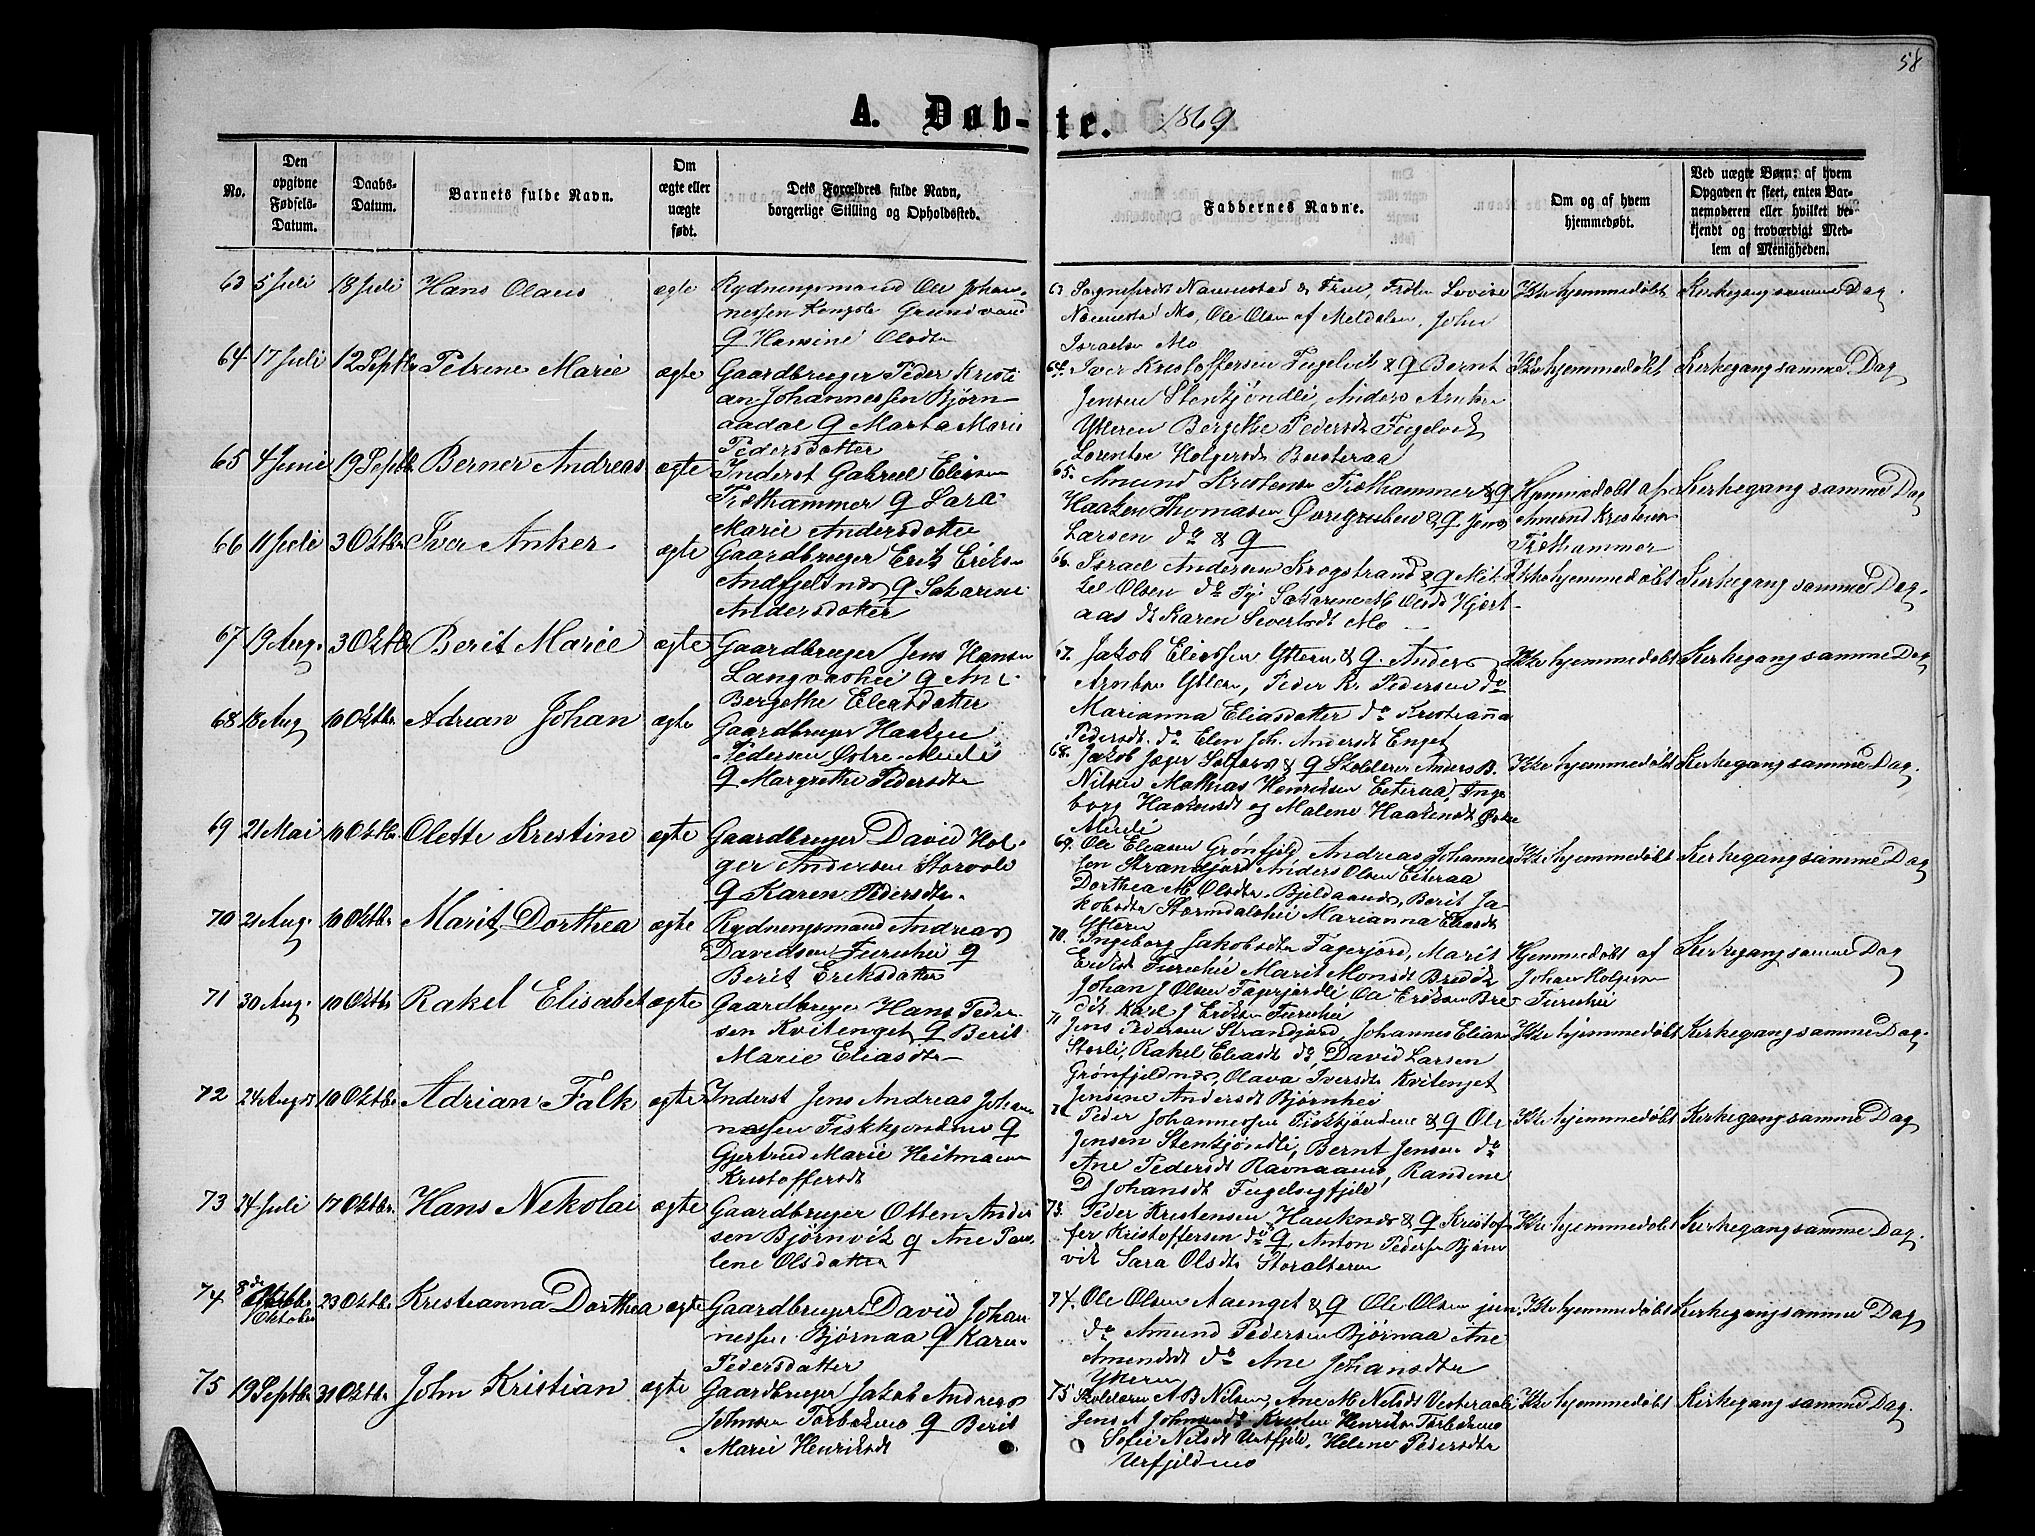 58
A. Døb-te. 1869
No.
Den opgivne Fødsels-Datum.
Daabs-Datum.
Barnets fulde Navn.
Om ægte eller uægte født.
Dets Forældres fulde Navn, borgerlige Stilling og Opholdssted.
Faddernes Navne.
Om og af hvem hjemmedøbt.
Ved uægte Børn: af hvem Opgaven er skeet, enten Barnemoderen eller hvilket bekjendt og troværdigt Medlem af Menigheden.
63 5 Juli 18 Juli Hans Olaus ægte
Rydningsmand Ole Johan-
nessen Grundvand
& Hansine Olsdtr
Ole Olsen af Meldalen, John
Israelsen Mo
Ikke hjemmedøbt Kirkegang samme Dag.
64 17 Juli 12 Septbr Petrine Marie ægte
Gaardbruger Peder Kristi
an Johannessen Bjørn-
aadal & Marta Marie
Pedersdatter
64. Iver Kristoffersen Fugelvik & & Bernt
Jensen Stenkjøndli, Anders Arntsen
Ytteren Bergitte Pedersdt Fugelvik
Lorentse Holgersdt Busteraa
Ikke hjemmedøbt Kirkegang samme Dag
65 4 Juni 19 Septbr Berner Andreas ægte
Inderst Gabriel Eliasen
Træthammer & Lara
Marie Andersdatter
65. Amund Kristensen Træthammer & &
Haaken Thomasen & & Jens
Larsen do & &
Hjemmedøbt af
Amund Kristensen
Træthammer
Kirkegang samme Dag
66 11 Juli 3 Oktbr Iver Anker ægte
Gaardbruger Erik Eriksen
Andfjeldnæs & Sakarine
Andersdatter
66. Israel Andersen Krogstrand & & Mik-
kel Olsen do Sakarine M Olsdt Hjert-
aas & Karen Sivertsdt Mo
Ikke hjemmedøbt Kirkegang samme Dag.
67 19 Aug. 3 Oktbr Berit Marie ægte
Gaardbruger Jens Hansen
Langvashei & Ane
Bergethe Eliasdatter
67. Jakob Eliassen Yttern & & Anders
Arntsen Yttern, Peder Kr. Pedersen do
Marianna Eliasdatter do Kristianna
Pedersdt. do Elen Joh. Andersdt Enget
Ikke hjemmedøbt Kirkegang samme Dag
68 18 Aug 10 Oktbr Adrian Johan ægte
Gaardbruger Haaken
Pedersen Østre
& Margrethe Pedersdtr
68. Jakob Jæger Selfors & & Skolelærer Anders B.
Nilsen Mathias Henriksen Eiteraa, Inge
borg Haakensdt og Malene Haakensdt Østre
Ikke hjemmedøbt Kirkegang samme Dag.
69 21 Mai 10 Oktbr Olette Kristine ægte
Gaardbruger David Hol-
ger Andersen Storvole
& Karen Pedersdtr.
69. Ole Eliasen Grønfjeld Andreas Johannes
sen Strandjord Anders Olsen Eiteraa
Dorthea M Olsdtr. Bjeldaanes, Berit Ja-
kobsdtr Stormdalshei Marianna Eliasdt
Yttern
Ikke hjemmedøbt Kirkegang samme Dag
70 21 Aug. 10 Oktbr. Marit Dorthea ægte
Rydningsmand Andreas
Davidsen Furuhei &
Berit Eriksdatter
70. Ingeborg Jakobsdtr Fagerjord, Marit
Eriksdt Furuhei Marit Monsdt Bredek
Johan J Olsen Fagerjordli Ole Eriksen Bre-
dek. Karl J Eriksen Furuhei
Hjemmedøbt af
Johan Holgersen
Furuhei
Kirkegang samme Dag
71 30 Aug. 10 Oktbr Rakel Elisabet ægte
Gaardbruger Hans Peder-
sen Kvitenget & Berit
Marie Eliasdtr
71 Jens Pedersen Strandjord, Johannes Eliasen
Storli, Rakel Eliasdt do, David Larsen
Grønfjeldnæs, Olava Iversdtr Kvitenget
Jensine Andersdt Bjørnhei
Ikke hjemmedøbt Kirkegang samme Dag.
72 24 August 10 Oktbr. Adrian Falk ægte
Inderst Jens Andreas Johan
nessen Fiskkjøndmo &
Gjertrud Marie Heitmann
Kristoffersdt
72 Peder Johannessen Fiskkjøndmo & & Ole
Jensen Stenkjøndli, Bernt Jensen do
Ane Pedersdt Ravnaamo, Randine
D Johansdt Fugelsygfjeld
Ikke hjemmedøbt Kirkegang samme Dag
73 24 Juli 17 Oktbr. Hans Nekolai ægte
Gaardbruger Otten Ander
sen Bjørnvik & Ane Pau-
lene Olsdatter
73. Peder Kristensen Hauknes & & Kristof
fer Kristoffersen do & Anton Pedersen Bjørn
vik Sara Olsdtr Storalteren
Ikke hjemmedøbt Kirkegang samme Dag.
74 8de Oktober 23 Oktbr. Kristianna Dorthea ægte
Gaardbruger David Johan-
nessen Bjørnaa & Karen
Pedersdatter
74. Ole Olsen Aaenget & & Ole Olsen jun.
do Amund Pedersen Bjørnaa Ane
Amundsdt do Ane Johansdtr
Yttern
Ikke hjemmedøbt Kirkegang samme Dag
75 19 Septbr 31 Oktbr. John Kristian ægte
Gaardbruger Jakob Andreas
Johnsen Torbekmo & Berit
Marie Henriksdt
75 Skolelærer A B Nilsen, Ane M Nilsdt Vesteraali
Jens A Johnsen Kristen Henriksen Torbekmo
Sofie Nilsdt Urtfjeld, Helene Pedersdtr
Urfjeldmo
Ikke hjemmedøbt Kirkegang samme Dag.